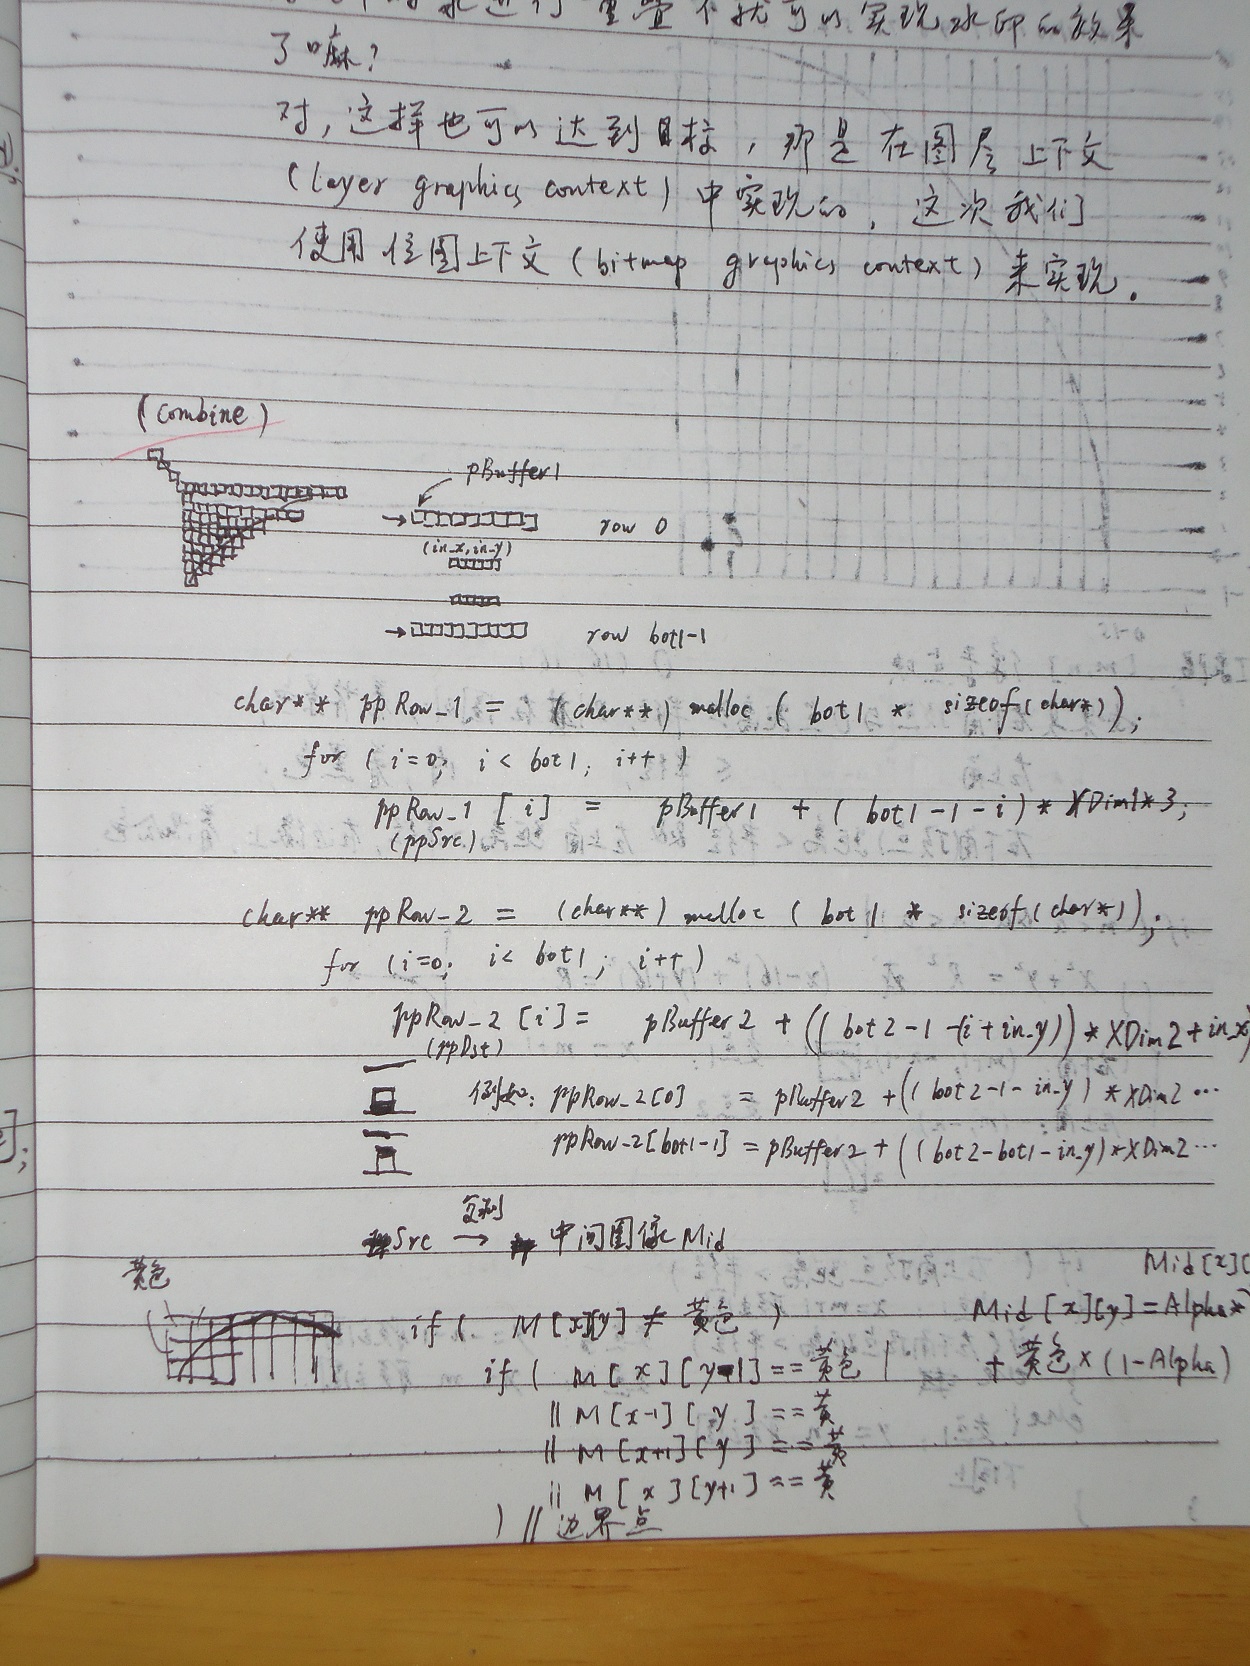 进行重叠不就可以实现水印的效果
了嘛？
对，这样也可以达到目标，那是在图层上下文
(layer graphics context) 中实现的，这次我们
使用位图上下文 (bitmap graphics context) 来实现。
(combine)
pBuffer1
row 0
(in_x, in_y)
row bot1-1
char** ppRow_1 = (char**) malloc ( bot1 * sizeof(char*));
for ( i=0; i < bot1; i++ )
ppRow_1 [i] = pBuffer1 + ( bot1-1-i ) * XDim1*3;
(ppSrc)
char** ppRow_2 = (char**) malloc ( bot1 * sizeof(char*));
for (i=0; i< bot1; i++)
ppRow_2 [i] = pBuffer2 + (( bot2-1-(i+in_y)) * XDim2 + in_x)
(ppDst)
例如: ppRow_2[0] = pBuffer2 + (( bot2-1-in_y) * XDim2 ...
ppRow_2[bot1-1] = pBuffer2 + ((bot2-bot1-in_y)*XDim2 ...
复制
Src → 中间图像 Mid
黄色
Mid[x][
if ( M[x][y] ≠ 黄色 ) Mid [x][y] = Alpha*
if ( M[x][y-1] == 黄色 + 黄色×(1-Alpha)
|| M[x-1][y] == 黄
|| M[x+1][y] == 黄
|| M[x][y+1] == 黄
) // 边界点